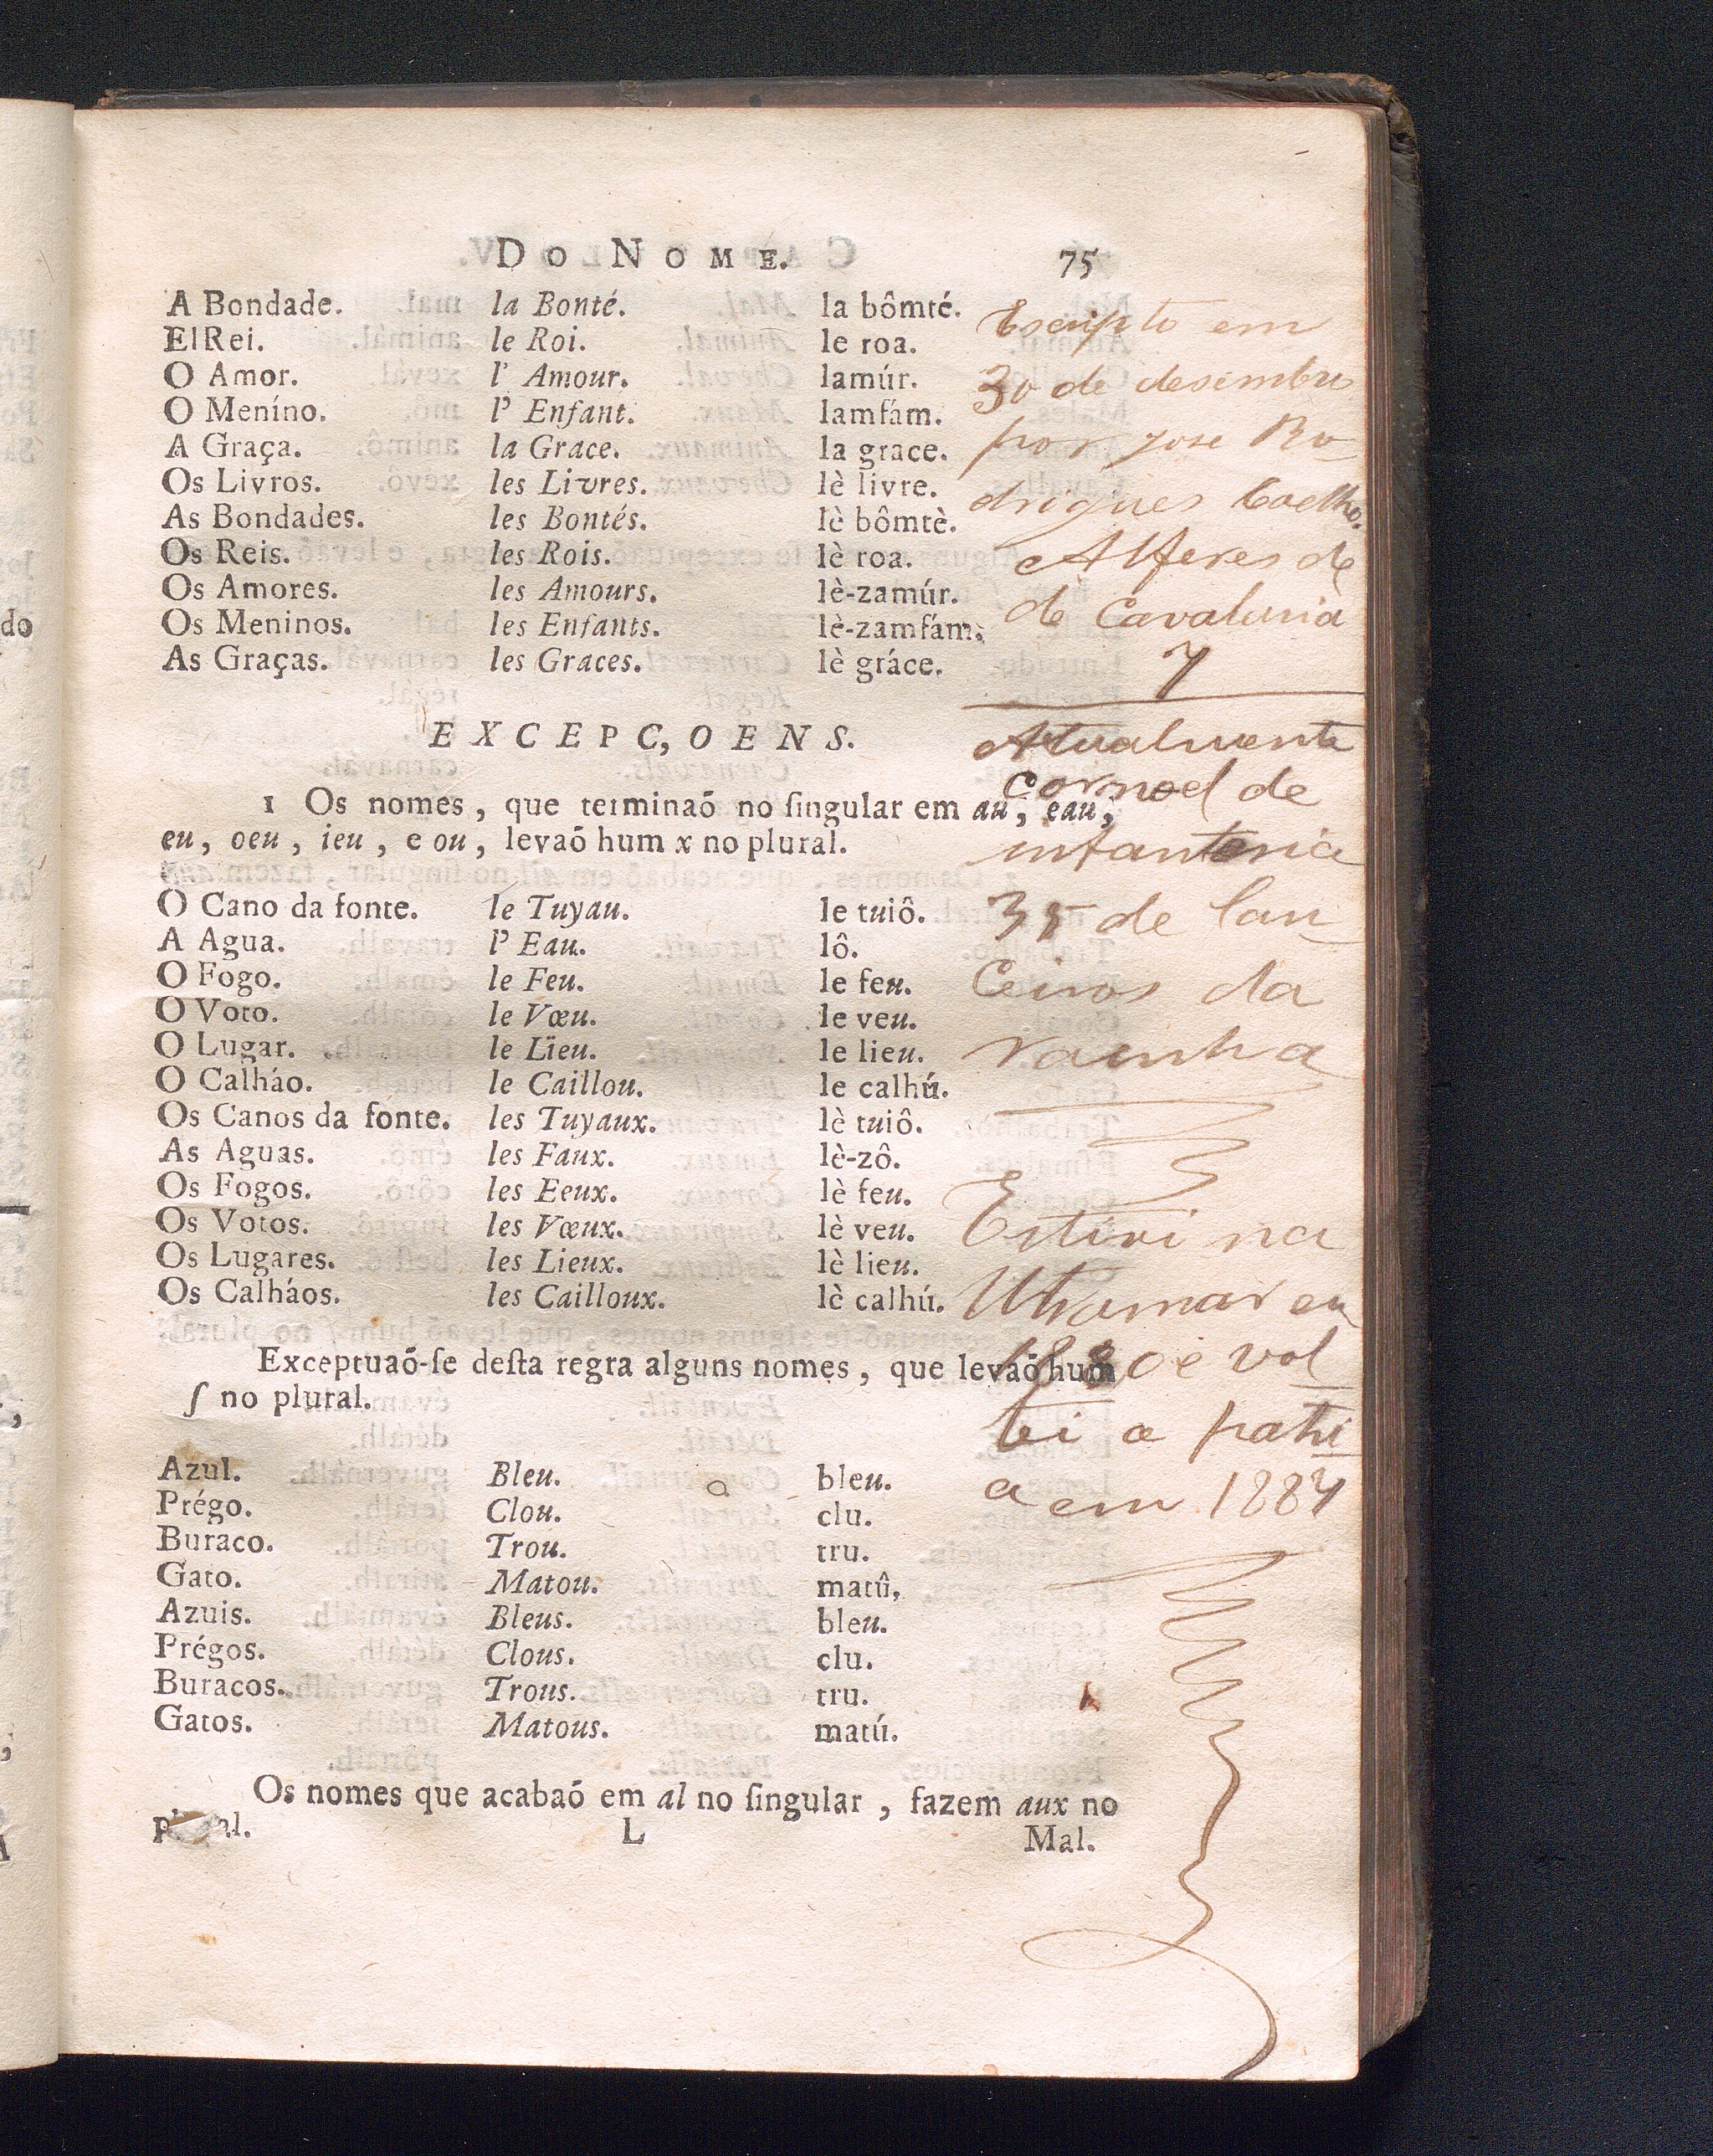 DO NOME. 75
A Bondade. la Bonté. la bômté.
ElRei. le Roi. le roa.
O Amor. l' Amour. lamúr.
O Meníno. l' Enfant. lamfám.
A Graça. la Grace. la grace.
Os Livros. les Livres. lè livre.
As Bondades. les Bontés. lè bômtè.
Os Reis. les Rois. lè roa.
Os Amores. les Amours. lè-zamúr.
Os Meninos. les Enfants. lè-zamfám.
As Graças. les Graces. lè gráce.
EXCEPC,OENS.
1 Os nomes, que terminaõ no ſingular em au, eau,
eu, oeu, ieu, e ou, levaõ hum x no plural.
O Cano da fonte. le Tuyau. le tuiô.
A Agua. l' Eau. lô.
O Fogo. le Feu. le feu.
O Voto. le Vœu. le veu.
O Lugar. le Lieu. le lieu.
O Calháo. le Caillou. le calhú.
Os Canos da fonte. les Tuyaux. lè tuiô.
As Aguas. les Faux. lè-zô.
Os Fogos. les Eeux. lè feu.
Os Votos. les Vœux. lè veu.
Os Lugares. les Lieux. lè lieu.
Os Calháos. les Cailloux. lè calhú.
Exceptuaõ-ſe deſta regra alguns nomes, que levaõ hum
ſ no plural.
Azul. Bleu. bleu.
Prégo. Clou. clu.
Buraco. Trou. tru.
Gato. Matou. matû,
Azuis. Bleus. bleu.
Prégos. Clous. clu.
Buracos. Trous. tru.
Gatos. Matous. matú.
Os nomes que acabaõ em al no ſingular, fazem aux no
L Mal.
Escripto em
30 de desembro
por Jose Ro
drigues Coelho.
Alferes de
de Cavaluria
7
Atualmente
cornoel de
infanteria
de lan
Ceiros da
rainha
Estivi na
Utramar em
e vol
tei a patri
a em 1884
do